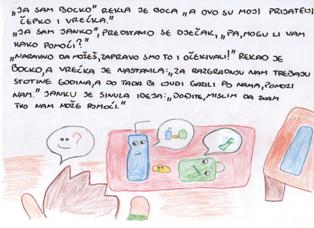 „JA SAM BOCKO" REKLA JE BOCA „A OVO SU MOJI PRIJATELJI
ČEPKO I VREĆKA."
„JA SAM JANKO", PREDSTAVIO SE DJEČAK, „PA, MOGU LI VAM
KAKO POMOĆI?"
„NARAVNO DA MOŽEŠ, ZAPRAVO SMO TO I OČEKIVALI!" REKAO JE
BOCKO, A VREĆKA JE NASTAVILA: „ZA RAZGRADNJU NAM TREBAJU
STOTINE GODINA, A DO TADA BI LJUDI GAZILI PO NAMA, POMOZI
NAM." JANKU JE SINULA IDEJA: „DOĐITE, MISLIM DA ZNAM
TKO NAM MOŽE POMOĆI."
?